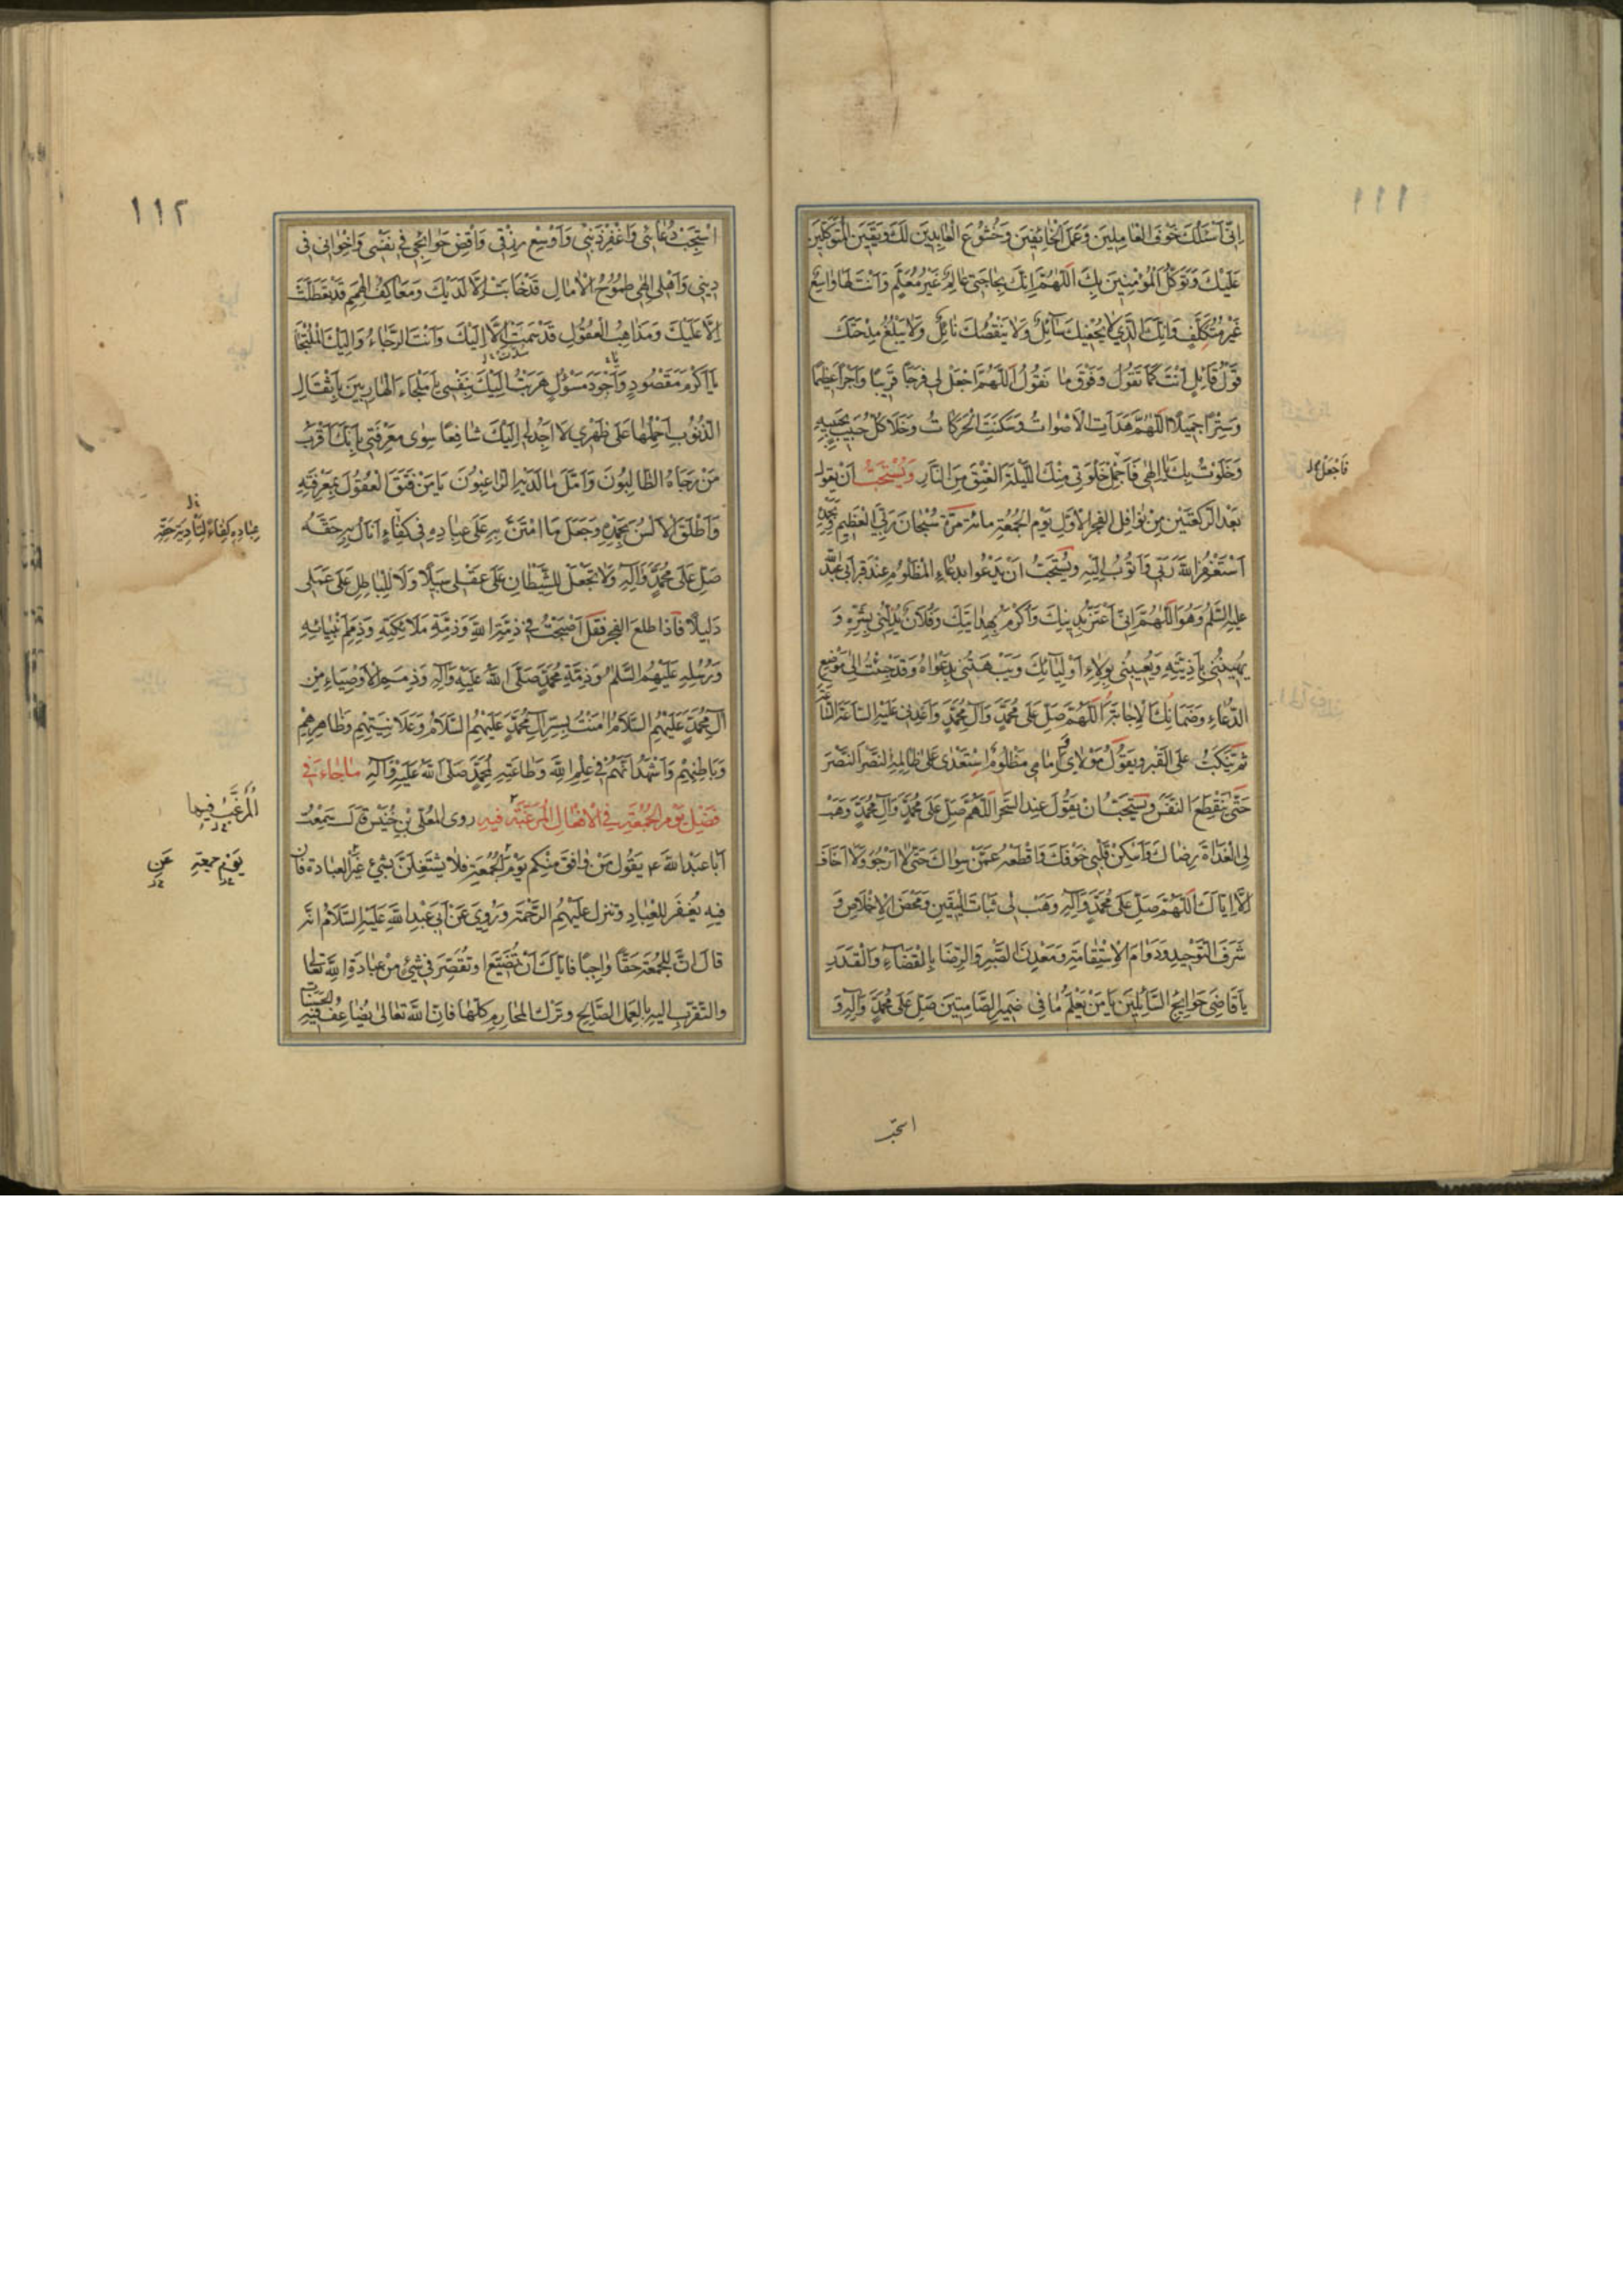 ١١١
اِنّى اَسْئَلُكَ خَوْفَ الْعَامِلِينَ وَعَمَلَ الْخَائِفِينَ وَخُشُوعَ الْعَابِدِينَ لَكَ وَيَقِينَ الْمُتَوَكِّلِينَ
عَلَيْكَ وَتَوَكُّلَ الْمُؤْمِنِينَ بِكَ اَللّهُمَّ اِنَّكَ بِحَاجَتِى عَالِمٌ غَيْرُ مُعَلَّمٍ وَاَنْتَ لَهَا وَاسِعٌ
غَيْرُ مُتَكَلِّفٍ وَاَنْتَ الَّذِى لَا يُحْفِيكَ سَآئِلٌ وَلَا يَنْقُصُكَ نَائِلٌ وَلَا يَبْلُغُ مِدْحَتَكَ
قَوْلُ قَائِلٍ اَنْتَ كَمَا تَقُولُ وَفَوْقَ مَا نَقُولُ اَللّهُمَّ اجْعَلْ لِى فَرَجًا قَرِيبًا وَاَجْرًا عَظِيمًا
وَسِتْرًا جَمِيلًا اَللّهُمَّ هَدَاَتِ الْاَصْوَاتُ وَسَكَنَتِ الْحَرَكَاتُ وَخَلَا كُلُّ حَبِيبٍ بِحَبِيبِهِ
وَخَلَوْتُ بِكَ يَا اِلٰهِى فَاجْعَلْ خَلْوَتِى مِنْكَ اللَّيْلَةَ الْعِتْقَ مِنَ النَّارِ وَيُسْتَحَبُّ اَنْ يَقُولَ
فَاجْعَلْ
بَعْدَ الرَّكْعَتَيْنِ مِنْ نَوَافِلِ الْفَجْرِ الْاَوَّلِ يَوْمَ الْجُمُعَةِ مِائَةَ مَرَّةٍ سُبْحَانَ رَبِّىَ الْعَظِيمِ وَبِحَمْدِهِ
اَسْتَغْفِرُ اللّٰهَ رَبِّى وَاَتُوبُ اِلَيْهِ وَيُسْتَحَبُّ اَنْ يَدْعُوا بِدُعَاءِ الْمَظْلُومِ عِنْدَ قَبْرِ اَبِى عَبْدِ اللّٰهِ
عَلَيْهِ السَّلَمُ وَهُوَ اَللّهُمَّ اِنِّى اَعْتَزُّ بِدِينِكَ وَاَكْرُمُ بِهِدَايَتِكَ وَفُلَانٌ يُذِلُّنِى بِشَرِّهِ وَ
يُهِينُنِى بِاَذِيَّتِهِ وَيُعِيبُنِى بِوَلَاءِ اَوْلِيَائِكَ وَيَبْهَتُنِى بِدَعْوَاهُ وَقَدْ جِئْتُ اِلَى مَوْضِعِ
الدُّعَاءِ وَضَمَانِكَ الْاِجَابَةَ اَللّهُمَّ صَلِّ عَلَى مُحَمَّدٍ وَآلِ مُحَمَّدٍ وَاَعْدِنِى عَلَيْهِ السَّاعَةَ السَّاعَةَ
ثُمَّ يَنْكَبُّ عَلَى الْقَبْرِ وَيَقُولُ مَوْلَاىَ اِمَامِى مَظْلُومٌ اسْتَعْدَى عَلَى ظَالِمِهِ النَّصْرَ النَّصْرَ
حَتّٰى يَنْقَطِعَ النَّفَسُ وَيُسْتَحَبُّ اَنْ يَقُولَ عِنْدَ السَّحَرِ اَللّهُمَّ صَلِّ عَلَى مُحَمَّدٍ وَآلِ مُحَمَّدٍ وَهَبْ
لِىَ الْغَدَاةَ رِضَاكَ وَاَسْكِنْ قَلْبِى خَوْفَكَ وَاقْطَعْهُ عَمَّنْ سِوَاكَ حَتّٰى لَا اَرْجُوَ وَلَا اَخَافَ
اِلَّا اِيَّاكَ اَللّهُمَّ صَلِّ عَلَى مُحَمَّدٍ وَآلِهِ وَهَبْ لِى ثَبَاتَ الْيَقِينِ وَمَحْضَ الْاِخْلَاصِ وَ
شَرَفَ التَّوْحِيدِ وَدَوَامَ الْاِسْتِقَامَةِ وَمَعْدِنَ الصَّبْرِ وَالرِّضَا بِالْقَضَاءِ وَالْقَدَرِ
يَا قَاضِىَ حَوَائِجِ السَّآئِلِينَ يَا مَنْ يَعْلَمُ مَا فِى ضَمِيرِ الصَّامِتِينَ صَلِّ عَلَى مُحَمَّدٍ وَآلِهِ وَ
استجب
١١٢
اسْتَجِبْ دُعَائِى وَاغْفِرْ ذَنْبِى وَاَوْسِعْ رِزْقِى وَاقْضِ حَوَائِجِى فِى نَفْسِى وَاِخْوَانِى فِى
دِينِى وَاَهْلِى اِلٰهِى طُمُوحُ الْاٰمَالِ قَدْ خَابَتْ اِلَّا لَدَيْكَ وَمَعَاكِفُ الْهِمَمِ قَدْ تَعَطَّلَتْ
اِلَّا عَلَيْكَ وَمَذَاهِبُ الْعُقُولِ قَدْ سَمَتْ اِلَّا اِلَيْكَ وَاَنْتَ الرَّجَاءُ وَاِلَيْكَ الْمُلْتَجَأُ
يَا اَكْرَمَ مَقْصُودٍ وَاَجْوَدَ مَسْؤُلٍ هَرَبْتُ اِلَيْكَ بِنَفْسِى يَا مَلْجَاءَ الْهَارِبِينَ بِاَثْقَالِ
الذُّنُوبِ اَحْمِلُهَا عَلَى ظَهْرِى لَا اَجِدُ لِى اِلَيْكَ شَافِعًا سِوَى مَعْرِفَتِى بِاَنَّكَ اَقْرَبُ
مَنْ رَجَاهُ الطَّالِبُونَ وَاَمَّلَ مَا لَدَيْهِ الرَّاغِبُونَ يَا مَنْ فَتَقَ الْعُقُولَ بِمَعْرِفَتِهِ
وَاَطْلَقَ الْاَلْسُنَ بِحَمْدِهِ وَجَعَلَ مَا امْتَنَّ بِهِ عَلَى عِبَادِهِ فِى كِفَاءٍ اَنَالَ بِهِ حَقَّهُ
عِبَادِهِ كِفَاءً لِتَأْدِيَةِ حَقِّهِ
صَلِّ عَلَى مُحَمَّدٍ وَآلِهِ وَلَا تَجْعَلْ لِلشَّيْطَانِ عَلَى عَقْلِى سَبِيلًا وَلَا لِلْبَاطِلِ عَلَى عَمَلِى
دَلِيلًا فَاِذَا طَلَعَ الْفَجْرُ فَقُلْ اَصْبَحْتُ فِى ذِمَّةِ اللّٰهِ وَذِمَّةِ مَلَائِكَتِهِ وَذِمَمِ اَنْبِيَائِهِ
وَرُسُلِهِ عَلَيْهِمُ السَّلَمُ وَذِمَّةِ مُحَمَّدٍ صَلَّى اللّٰهُ عَلَيْهِ وَآلِهِ وَذِمَمِ الْاَوْصِيَاءِ مِنْ
آلِ مُحَمَّدٍ عَلَيْهِمُ السَّلَامُ اٰمَنْتُ بِسِرِّ آلِ مُحَمَّدٍ عَلَيْهِمُ السَّلَامُ وَعَلَانِيَتِهِمْ وَظَاهِرِهِمْ
وَبَاطِنِهِمْ وَاَشْهَدُ اَنَّهُمْ فِى عِلْمِ اللّٰهِ وَطَاعَتِهِ كَمُحَمَّدٍ صَلَّى اللّٰهُ عَلَيْهِ وَآلِهِ مَا جَاءَ فِى
فَضْلِ يَوْمِ الْجُمُعَةِ فِى الْاَفْعَالِ الْمُرَغَّبَةِ فِيهِ رَوَى الْمُعَلَّى بْنُ خُنَيْسٍ قَالَ سَمِعْتُ
الْمُرَغَّبِ فِيهَا
اَبَا عَبْدِ اللّٰهِ ع يَقُولُ مَنْ وَافَقَ مِنْكُمْ يَوْمَ الْجُمُعَةِ فَلَا يَشْتَغِلَنَّ بِشَىْءٍ غَيْرِ الْعِبَادَةِ فَاِنَّ
يَوْمَ جُمُعَةٍ عَنِ
فِيهِ يُغْفَرُ لِلْعِبَادِ وَتَنْزِلُ عَلَيْهِمُ الرَّحْمَةُ وَرُوِىَ عَنْ اَبِى عَبْدِ اللّٰهِ عَلَيْهِ السَّلَامُ اَنَّهُ
قَالَ اِنَّ لِلْجُمُعَةِ حَقًّا وَاجِبًا فَاِيَّاكَ اَنْ تُضَيِّعَ اَوْ تُقَصِّرَ فِى شَىْءٍ مِنْ عِبَادَةِ اللّٰهِ تَعَالَى
وَالتَّقَرُّبِ اِلَيْهِ بِالْعَمَلِ الصَّالِحِ وَتَرْكِ الْمَحَارِمِ كُلِّهَا فَاِنَّ اللّٰهَ تَعَالَى يُضَاعِفُ فِيهِ الْحَسَنَاتِ